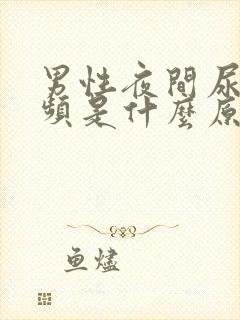 男性夜間尿
頻是什麼原
鱼燼